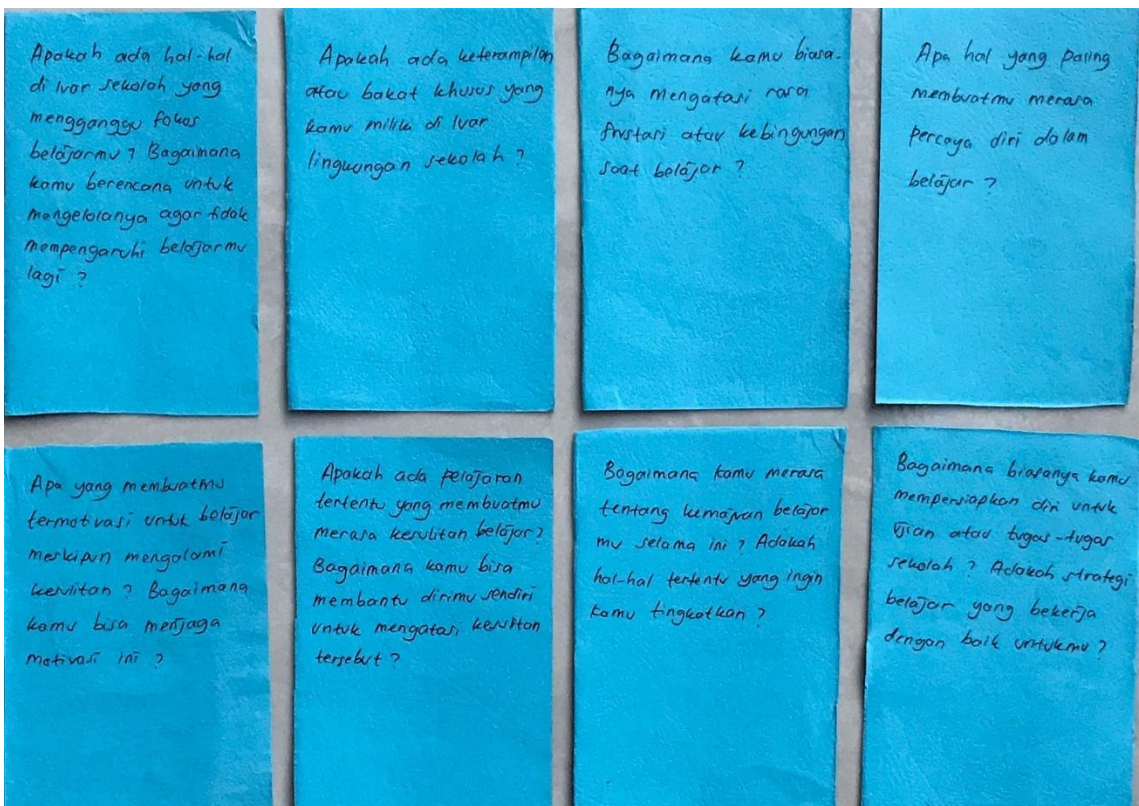 Apakah ada hal-hal
di luar sekolah yang
mengganggu fokus
belajarmu ? Bagaimana
kamu berencana untuk
mengelolanya agar tidak
mempengaruhi belajarmu
lagi ?
Apakah ada keterampilan
atau bakat khusus yang
kamu miliki di luar
lingkungan sekolah ?
Bagaimana kamu biasa-
nya mengatasi rasa
frustasi atau kebingungan
saat belajar ?
Apa hal yang paling
membuatmu merasa
percaya diri dalam
belajar ?
Apa yang membuatmu
termotivasi untuk belajar
meskipun mengalami
kesulitan ? Bagaimana
kamu bisa menjaga
motivasi ini ?
Apakah ada pelajaran
tertentu yang membuatmu
merasa kesulitan belajar ?
Bagaimana kamu bisa
membantu dirimu sendiri
untuk mengatasi kesulitan
tersebut ?
Bagaimana kamu merasa
tentang kemajuan belajar
mu selama ini ? Adakah
hal-hal tertentu yang ingin
kamu tingkatkan ?
Bagaimana biasanya kamu
mempersiapkan diri untuk
ujian atau tugas-tugas
sekolah ? Adakah strategi
belajar yang bekerja
dengan baik untukmu ?